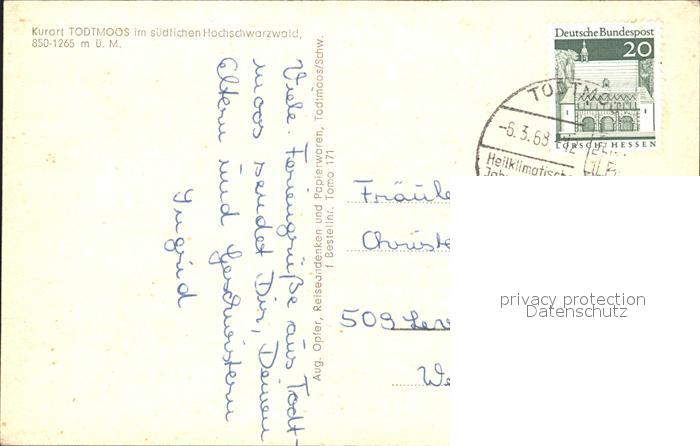 Kurort TODTMOOS im südlichen Hochschwarzwald,
850-1265 m ü. M.
Viele Feriengrüße aus Todt-
moos sendet Dir, Deinen
Eltern und Geschwistern
Ingrid
Aug. Opfer, Reiseandenken und Papierwaren, Todtmoos/Schw.
f Bestellnr. Tomo 171
Deutsche Bundespost
20
LORSCH/HESSEN
TODTMOO
-6.3.68
Heilklimatische
Fräule
Christe
509 Lev
We
privacy protection
Datenschutz